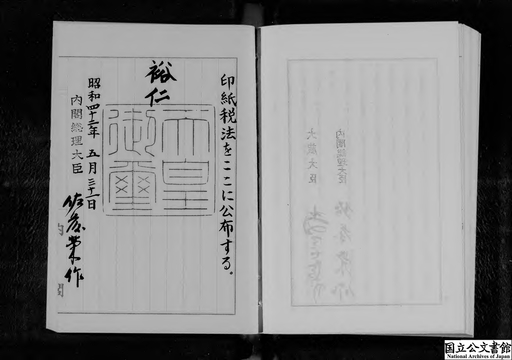 印紙税法をここに公布する。
裕仁
天皇御璽
昭和四十二年五月三十一日
内閣総理大臣 佐藤榮作
内閣総理大臣
大蔵大臣
国立公文書館
National Archives of Japan